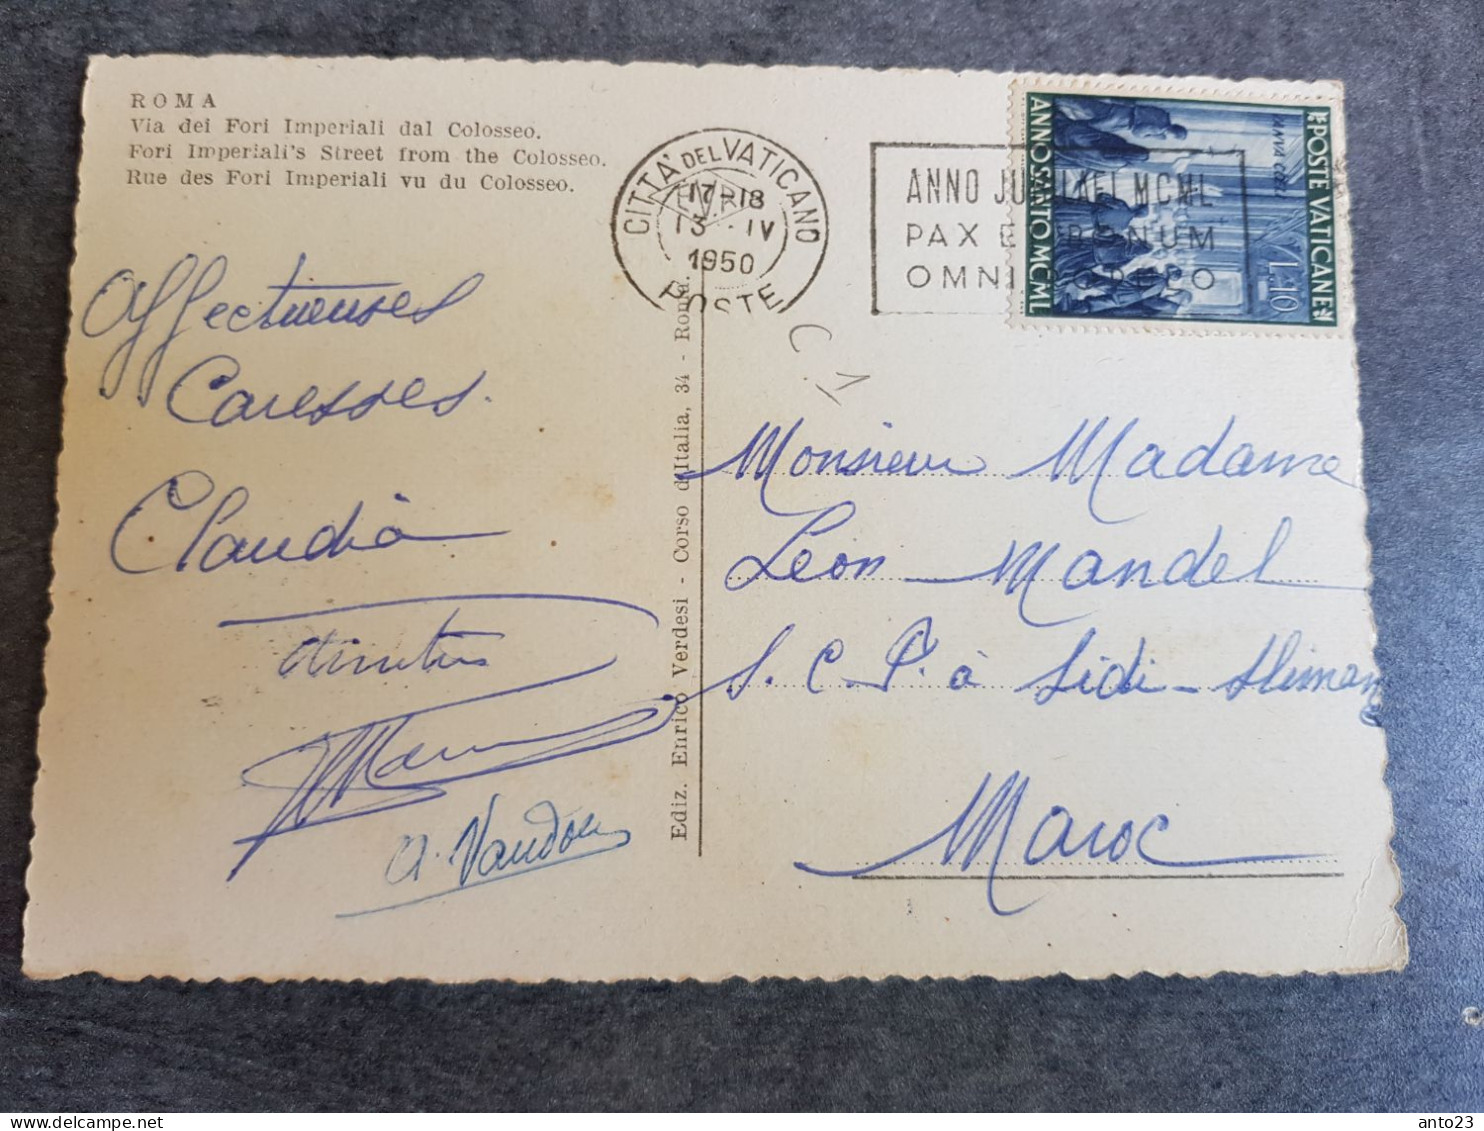 ROMA
Via dei Fori Imperiali dal Colosseo.
Fori Imperiali's Street from the Colosseo.
Rue des Fori Imperiali vu du Colosseo.
Affectueuses
Caresses.
Claudia
A. Vandou
Ediz. Enrico Verdesi - Corso d'Italia, 34 - Roma.
CITTA' DEL VATICANO
17-18
13 - IV
1950
POSTE
ANNO JUBILAEI MCML
PAX
OMNI
POSTE VATICANE
ANNO SANTO MCML
IANVA COELI
L. 10
C. 1
Monsieur Madame
Léon Mandel
S. C. P. à Sidi-Slimane
Maroc
anto23